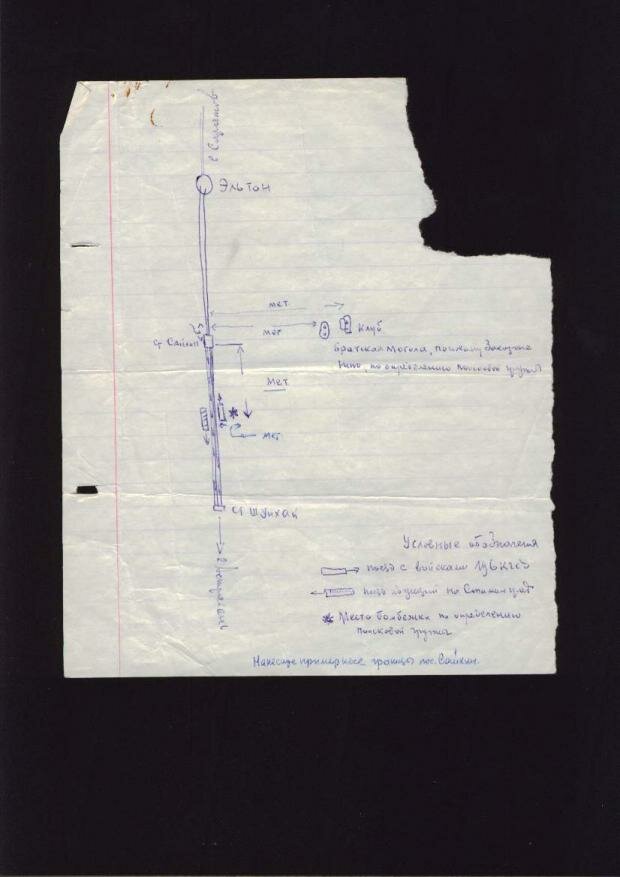 г Саратов
Эльтон
мет.
мет
Клуб
ст Сайхин
братская могила, по
по определению поисковой группы
мет.
мет
ст Шунхай
г Астрахань
Условные обозначения
поезд с войсками 196 КГСД
поезд идущий на Сталинград
Место бомбежки по определению
поисковой группы
Нанесите примерные границы пос. Сайхин.